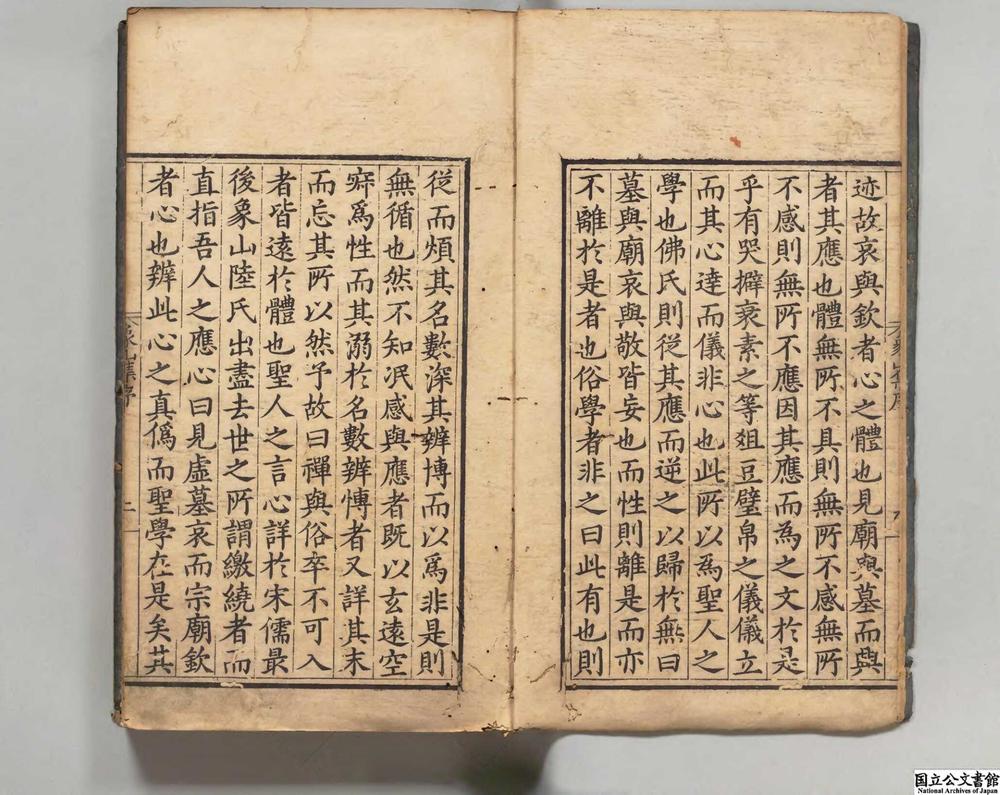 迹故哀與欽者心之體也見廟與墓而與
者其應也體無所不具則無所不感無所
不感則無所不應因其應而為之文於是
乎有哭擗衰素之等俎豆璧帛之儀儀立
而其心達而儀非心也此所以為聖人之
學也佛氏則從其應而逆之以歸於無曰
墓與廟哀與敬皆妄也而性則離是而亦
不離於是者也俗學者非之曰此有也則
從而煩其名數深其辨博而以為非是則
無循也然不知泯感與應者既以玄遠空
寂為性而其溺於名數辨博者又詳其末
而忘其所以然予故曰禪與俗卒不可入
者皆遠於體也聖人之言心詳於宋儒最
後象山陸氏出盡去世之所謂繳繞者而
直指吾人之應心曰見虛墓哀而宗廟欽
者心也辨此心之真僞而聖學在是矣其
象山集序
二
国立公文書館
National Archives of Japan